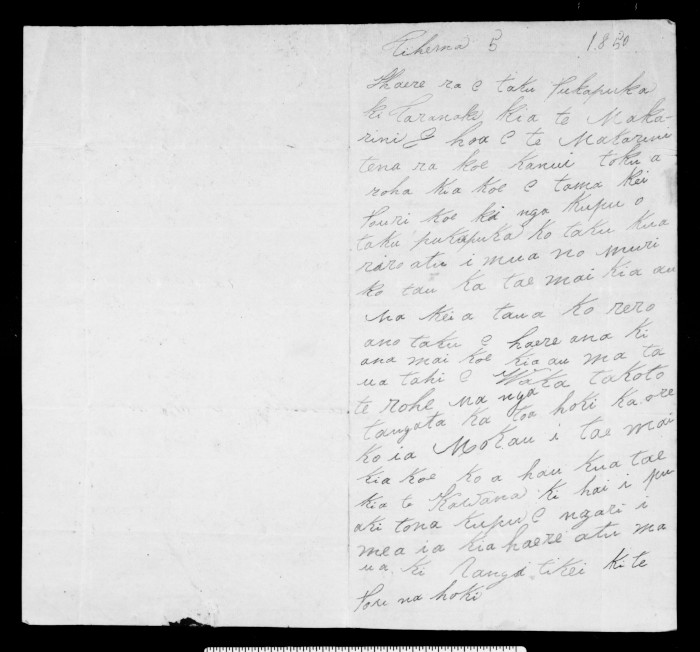 Tihema 5 1.8.50
Haere ra e taku Pukapuka
ki Taranake kia te Maka-
rini E hoa e te Makarini
tena ra koe kanui toku a
roha kia koe e tama kei
Pouri koe ki nga kupu o
taku pukapuka ko taku kua
riro atu i mua no muri
ko tau ka tae mai kia au
Na kei a taua ko rero
ano taku e haere ana ki
ana mai koe kia au ma ta
ua tahi e Waka takoto
te rohe na nga
tangata ka toa hoki ka ore
ko ia Mokau i tae mai
kia koe ko a hau kua tae
kia te Kawana ki hai i pu
aki tona kupu e ngari i
mea ia kia haere atu ma
ua ki Rangi tikei ki te
Poru na hoki